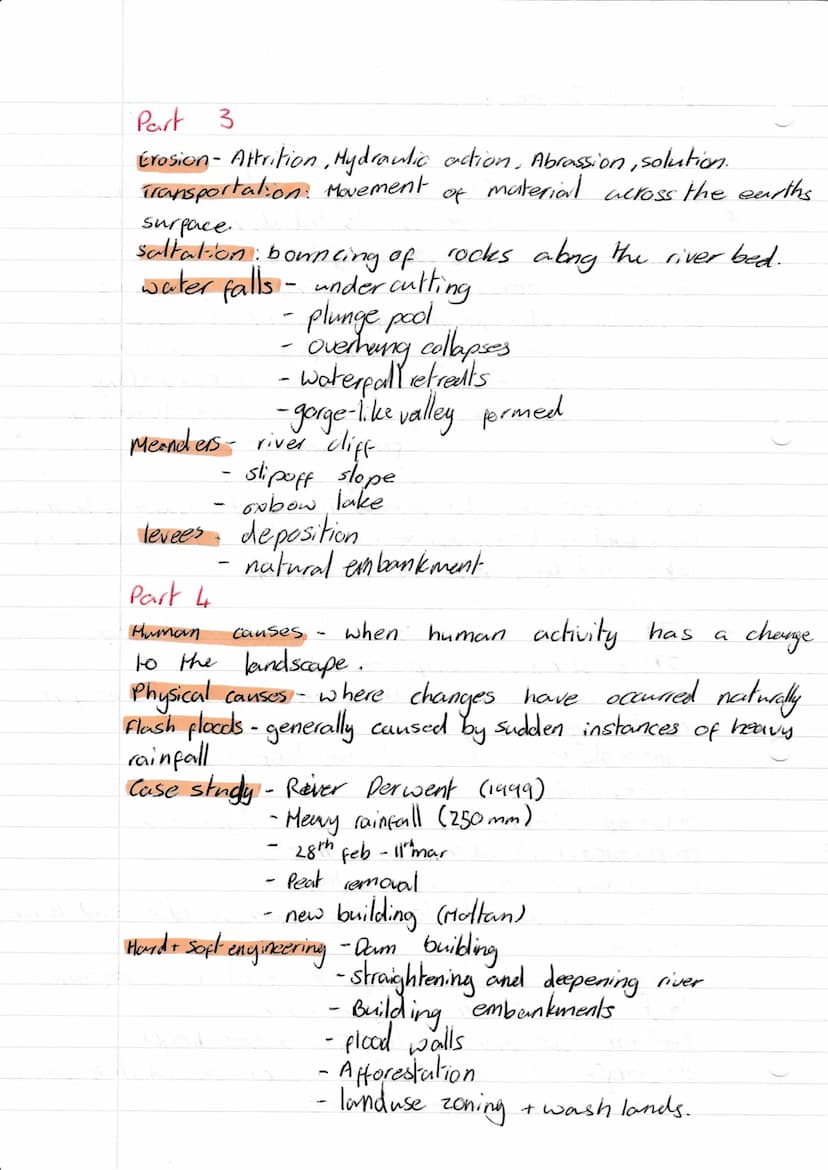 Part 3
Erosion - Attrition, Hydraulic action, Abrassion, solution.
Transportation: Movement of material across the earths
surface.
Saltation: bouncing of rocks along the river bed.
water falls - under cutting
- plunge pool
- overhang collapses
- waterfall retreats
- gorge-like valley formed
Meanders - river cliff
- slipoff slope
- oxbow lake
levees - deposition
- natural embankment
Part 4
Human causes - when human activity has a change
to the landscape.
Physical causes - where changes have occurred naturally
Flash floods - generally caused by sudden instances of heavy
rainfall
Case study - River Derwent (1999)
- Heavy rainfall (250mm)
- 28th feb - 11th mar
- Peat removal
- new building (Moltan)
Hard + Soft engineering - Dam building
- straightening and deepening river
- Building embankments
- flood walls
- Afforestation
- landuse zoning + wash lands.